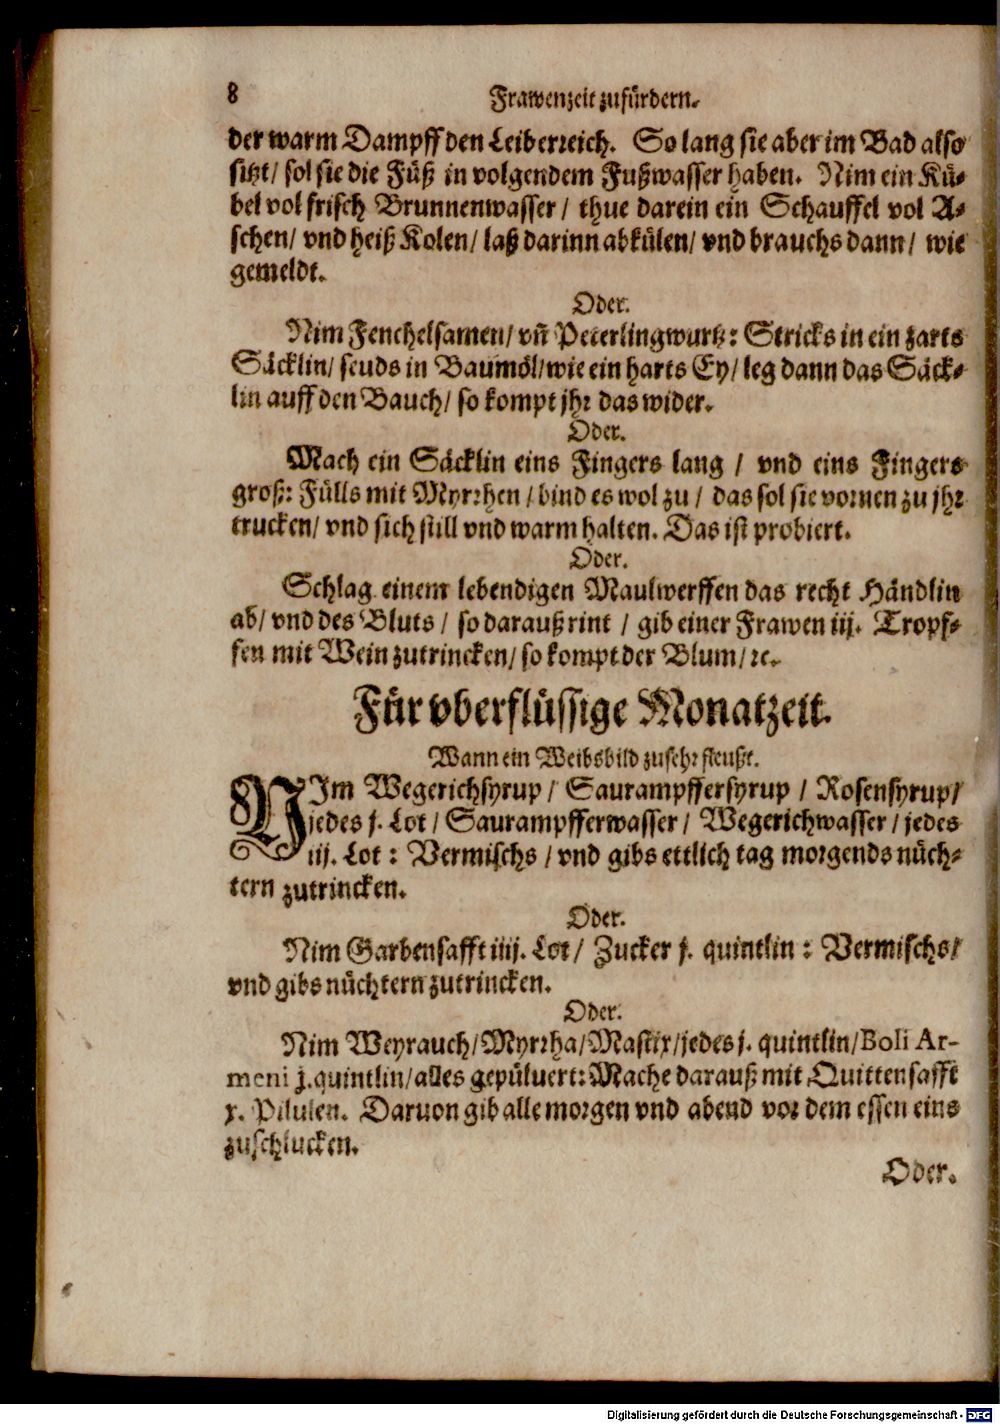 8
Frawenzeit zufürdern.
der warm Dampff den Leib erreich. So lang sie aber im Bad also
sitzt/ sol sie die Füß in volgendem Fußwasser haben. Nim ein Kü-
bel vol frisch Brunnenwasser/ thue darein ein Schauffel vol A-
schen/ vnd heiß Kolen/ laß darinn abkülen/ vnd brauchs dann/ wie
gemeldt.
Oder.
Nim Fenchelsamen/ vñ Peterlingwurtz: Stricks in ein zarts
Säcklin/ seuds in Baumöl/ wie ein harts Ey/ leg dann das Säck-
lin auff den Bauch/ so kompt jhr das wider.
Oder.
Mach ein Säcklin eins Fingers lang / vnd eins Fingers
groß: Fülls mit Myrrhen / bind es wol zu / das sol sie vornen zu jhr
trucken/ vnd sich still vnd warm halten. Das ist probiert.
Oder.
Schlag einem lebendigen Maulwerffen das recht Händlin
ab/ vnd des Bluts / so darauß rint / gib einer Frawen iij. Tropf-
fen mit Wein zutrincken/ so kompt der Blum/ ꝛc.
Für vberflüssige Monatzeit.
Wann ein Weibsbild zusehr fleußt.
NIm Wegerichsyrup / Saurampffersyrup / Rosensyrup/
jedes j. Lot / Saurampfferwasser / Wegerichwasser / jedes
iij. Lot : Vermischs / vnd gibs ettlich tag morgends nüch-
tern zutrincken.
Oder.
Nim Garbensafft iiij. Lot / Zucker j. quintlin : Vermischs/
vnd gibs nüchtern zutrincken.
Oder.
Nim Weyrauch/ Myrrha/ Mastix/ jedes j. quintlin/ Boli Ar-
meni j. quintlin/ alles gepüluert: Mache darauß mit Quittensafft
x. Pilulen. Daruon gib alle morgen vnd abend vor dem essen eins
zuschlucken.
Oder.
Digitalisierung gefördert durch die Deutsche Forschungsgemeinschaft - DFG